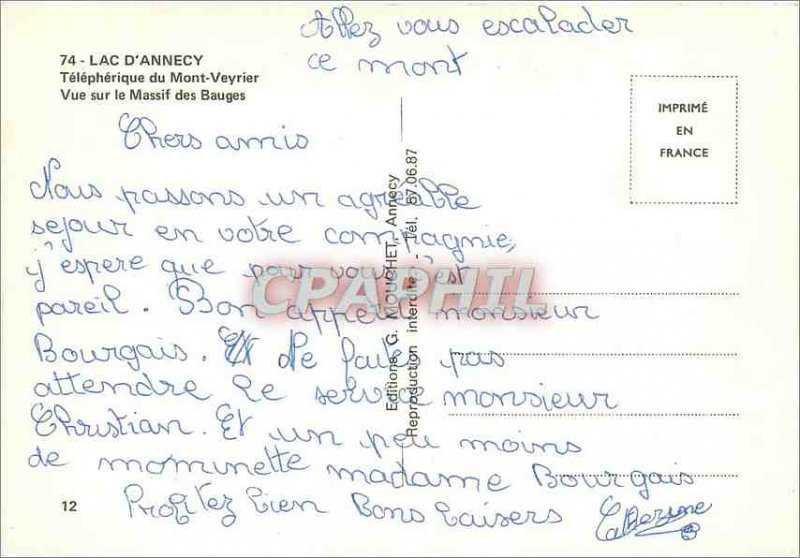 Allez vous escalader
ce mont
74 - LAC D'ANNECY
Téléphérique du Mont-Veyrier
Vue sur le Massif des Bauges
IMPRIMÉ
EN
FRANCE
Chers amis
Nous passons un agréable
sejour en votre compagnie,
j'espere que pour vous c'est
pareil. Bon appetit monsieur
Bourgais. Et Ne faites pas
attendre le service monsieur
Christian. Et un peu moins
de mominette madame Bourgais
Profitez bien Bons baisers Catherine
12
Editions G. MOUCHET, Annecy
Reproduction interdite - Tél. 57.06.87
CPAPHIL